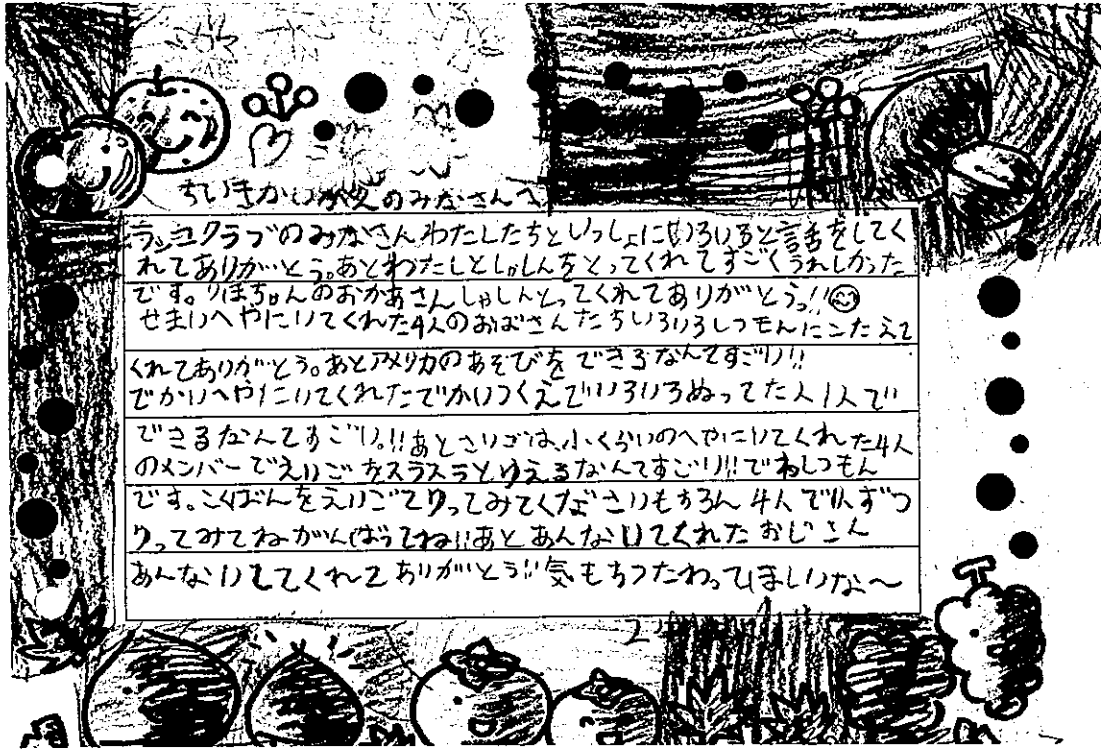 ちいきかいがえのみなさんへ
ランユクラブのみなさんわたしたちといっしょにいろいろと言舌をしてく
れてありがいとう。あとわたしとしゃしんをとってくれてすごくうれしかった
です。りほちゃんのおかあさんしゃしんとってくれてありがとうっ!!
せまいへやにいてくれた4人のおばさんたちいろいろしつもんにこたえて
くれてありがとう。あとアメリカのあそびをできるなんてすごい!!
でかいへやにいてくれたでかいつくえでいろいろぬってた人1人で
できるなんてすごい。!!あとさいごは、小くらいのへやにいてくれた4人
のメンバーでえいごをスラスラとゆえるなんてすごい!!でねしつもん
です。こくばんをえいごでいってみてくださいもちろん4人で1人ずつ
いってみてねがんばってね!!あとあんないしてくれたおじさん
あんないしてくれてありがとう!!気もちつたわってほしいな〜